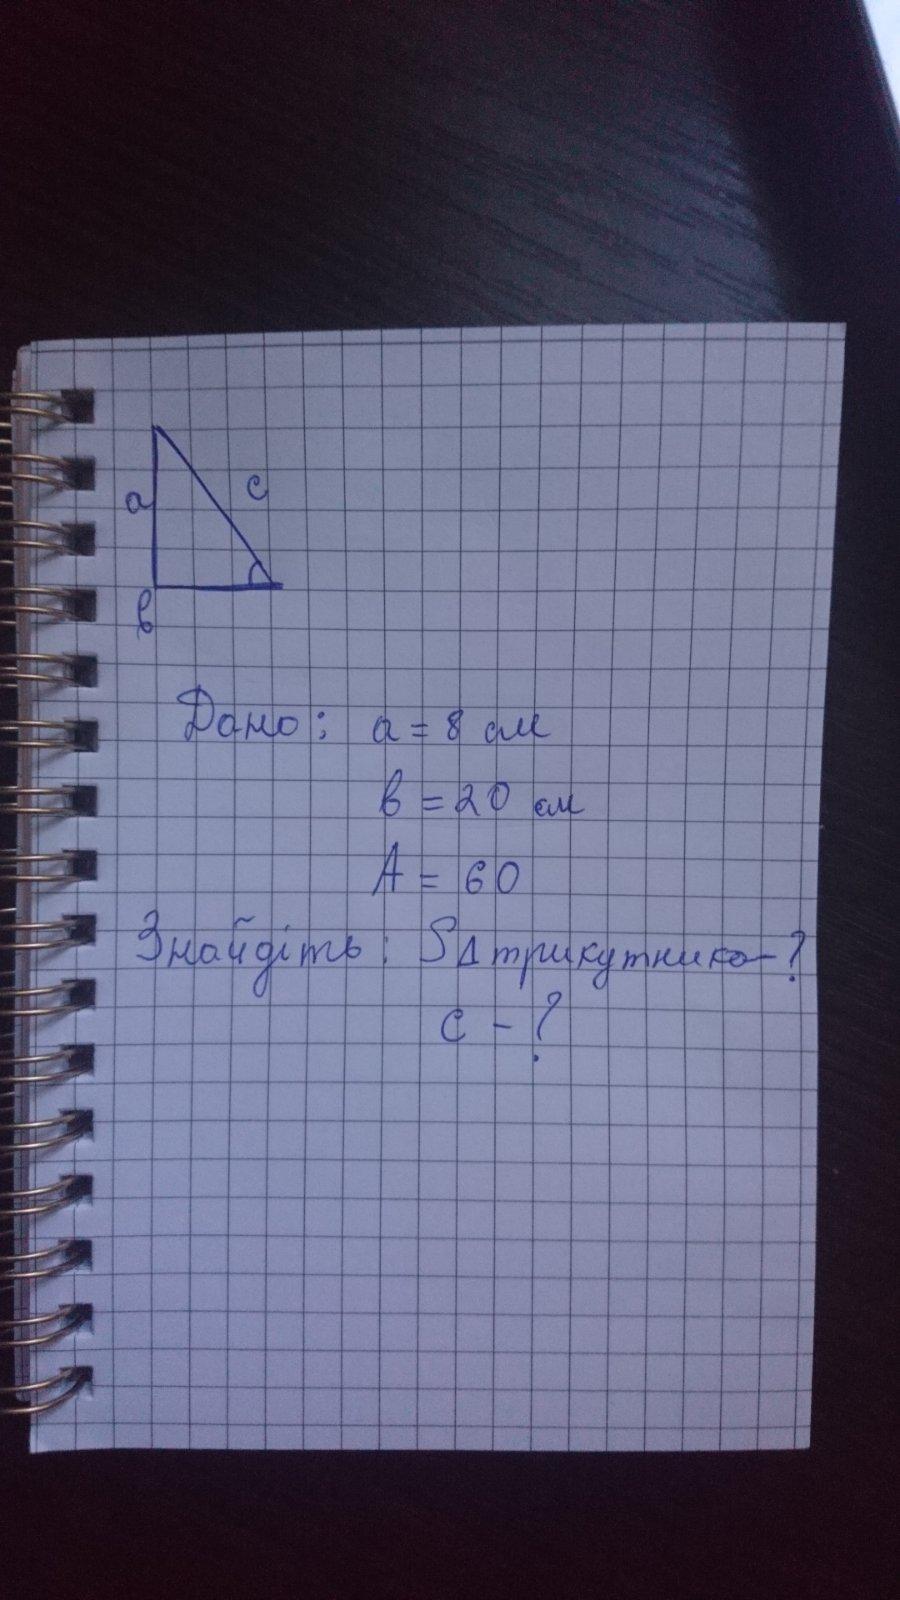 a
c
в
Дано: a = 8 см
в = 20 см
A = 60
Знайдіть: SΔ трикутника - ?
c - ?